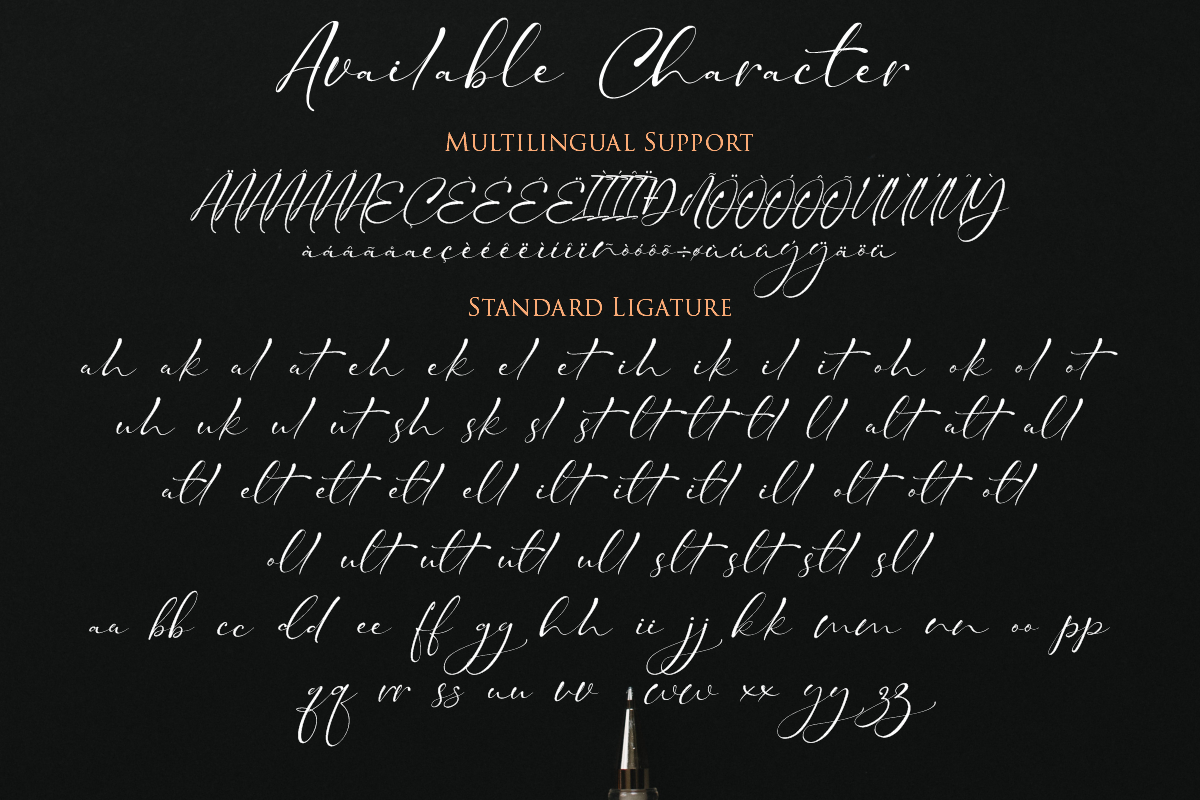 Available Character
MULTILINGUAL SUPPORT
àáâãäåaeçèéêëìíîïñòóôõ÷øùúûýÿäöü
STANDARD LIGATURE
ah ak al at eh ek el et ih ik il it oh ok ol ot
uh uk ul ut sh sk sl st lt tt tl ll alt att all
atl elt ett etl ell ilt itt itl ill olt ott otl
oll ult utt utl ull slt slt stl sll
aa bb cc dd ee ff gg hh ii jj kk mm nn oo pp
qq rr ss uu vv ww xx yy zz